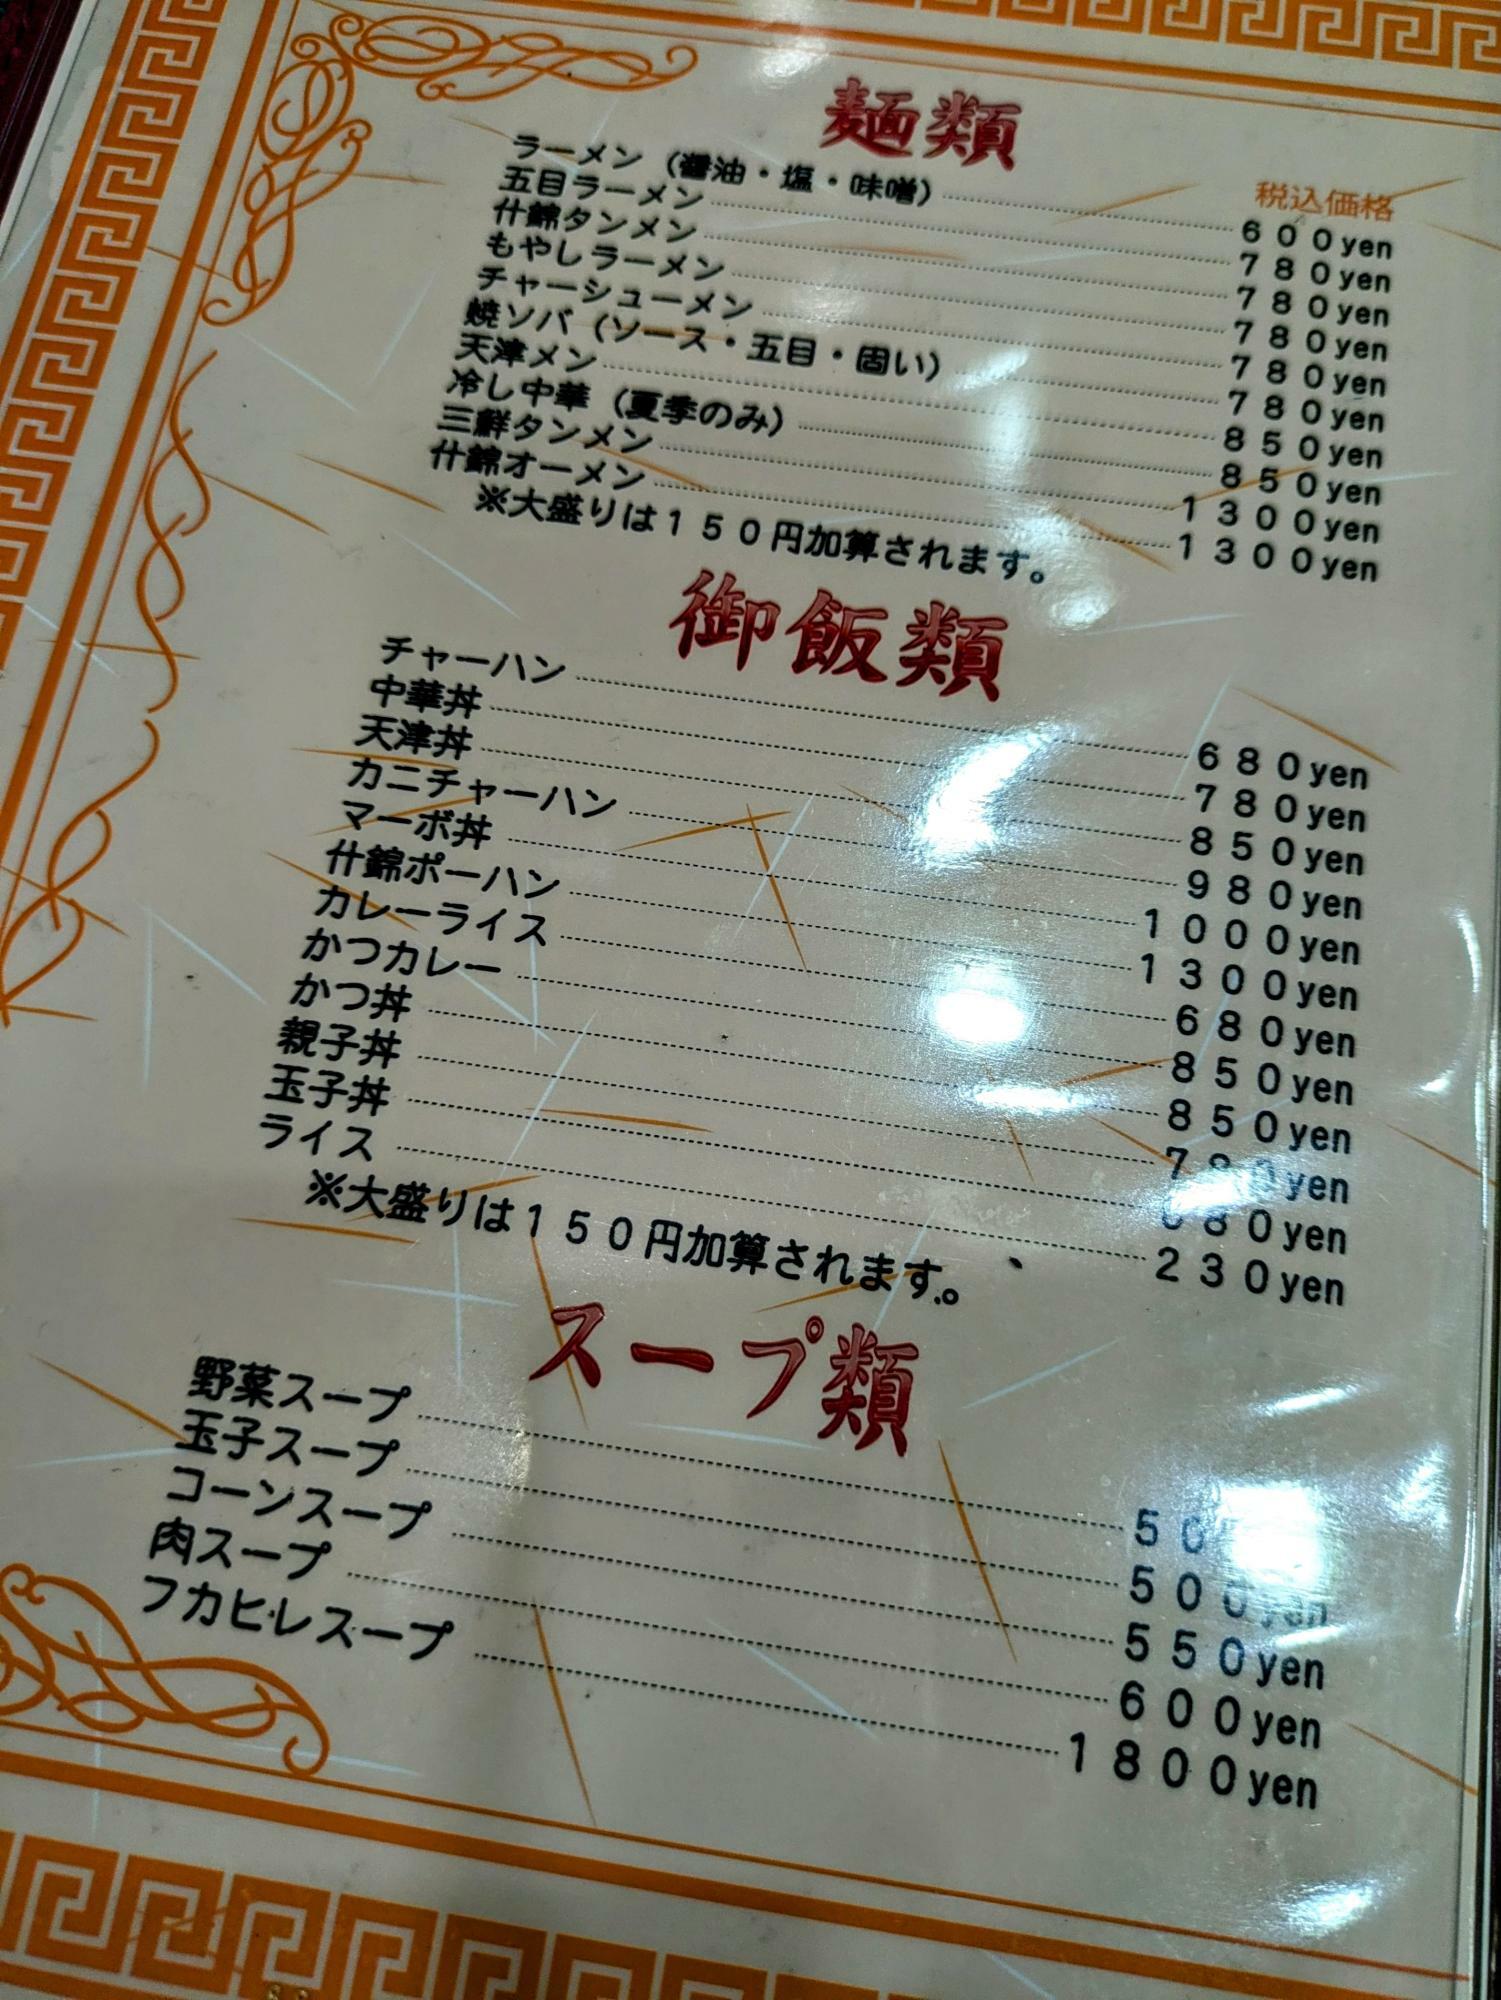 麺類
税込価格
ラーメン（醤油・塩・味噌） 600yen
五目ラーメン 780yen
什錦タンメン 780yen
もやしラーメン 780yen
チャーシューメン 780yen
焼ソバ（ソース・五目・固い） 780yen
天津メン 850yen
冷し中華（夏季のみ） 850yen
三鮮タンメン 1300yen
什錦オーメン 1300yen
※大盛りは150円加算されます。
御飯類
チャーハン 680yen
中華丼 780yen
天津丼 850yen
カニチャーハン 980yen
マーボ丼 1000yen
什錦ポーハン 1300yen
カレーライス 680yen
かつカレー 850yen
かつ丼 850yen
親子丼 780yen
玉子丼
ライス 230yen
※大盛りは150円加算されます。
スープ類
野菜スープ
玉子スープ 500yen
コーンスープ 550yen
肉スープ 600yen
フカヒレスープ 1800yen